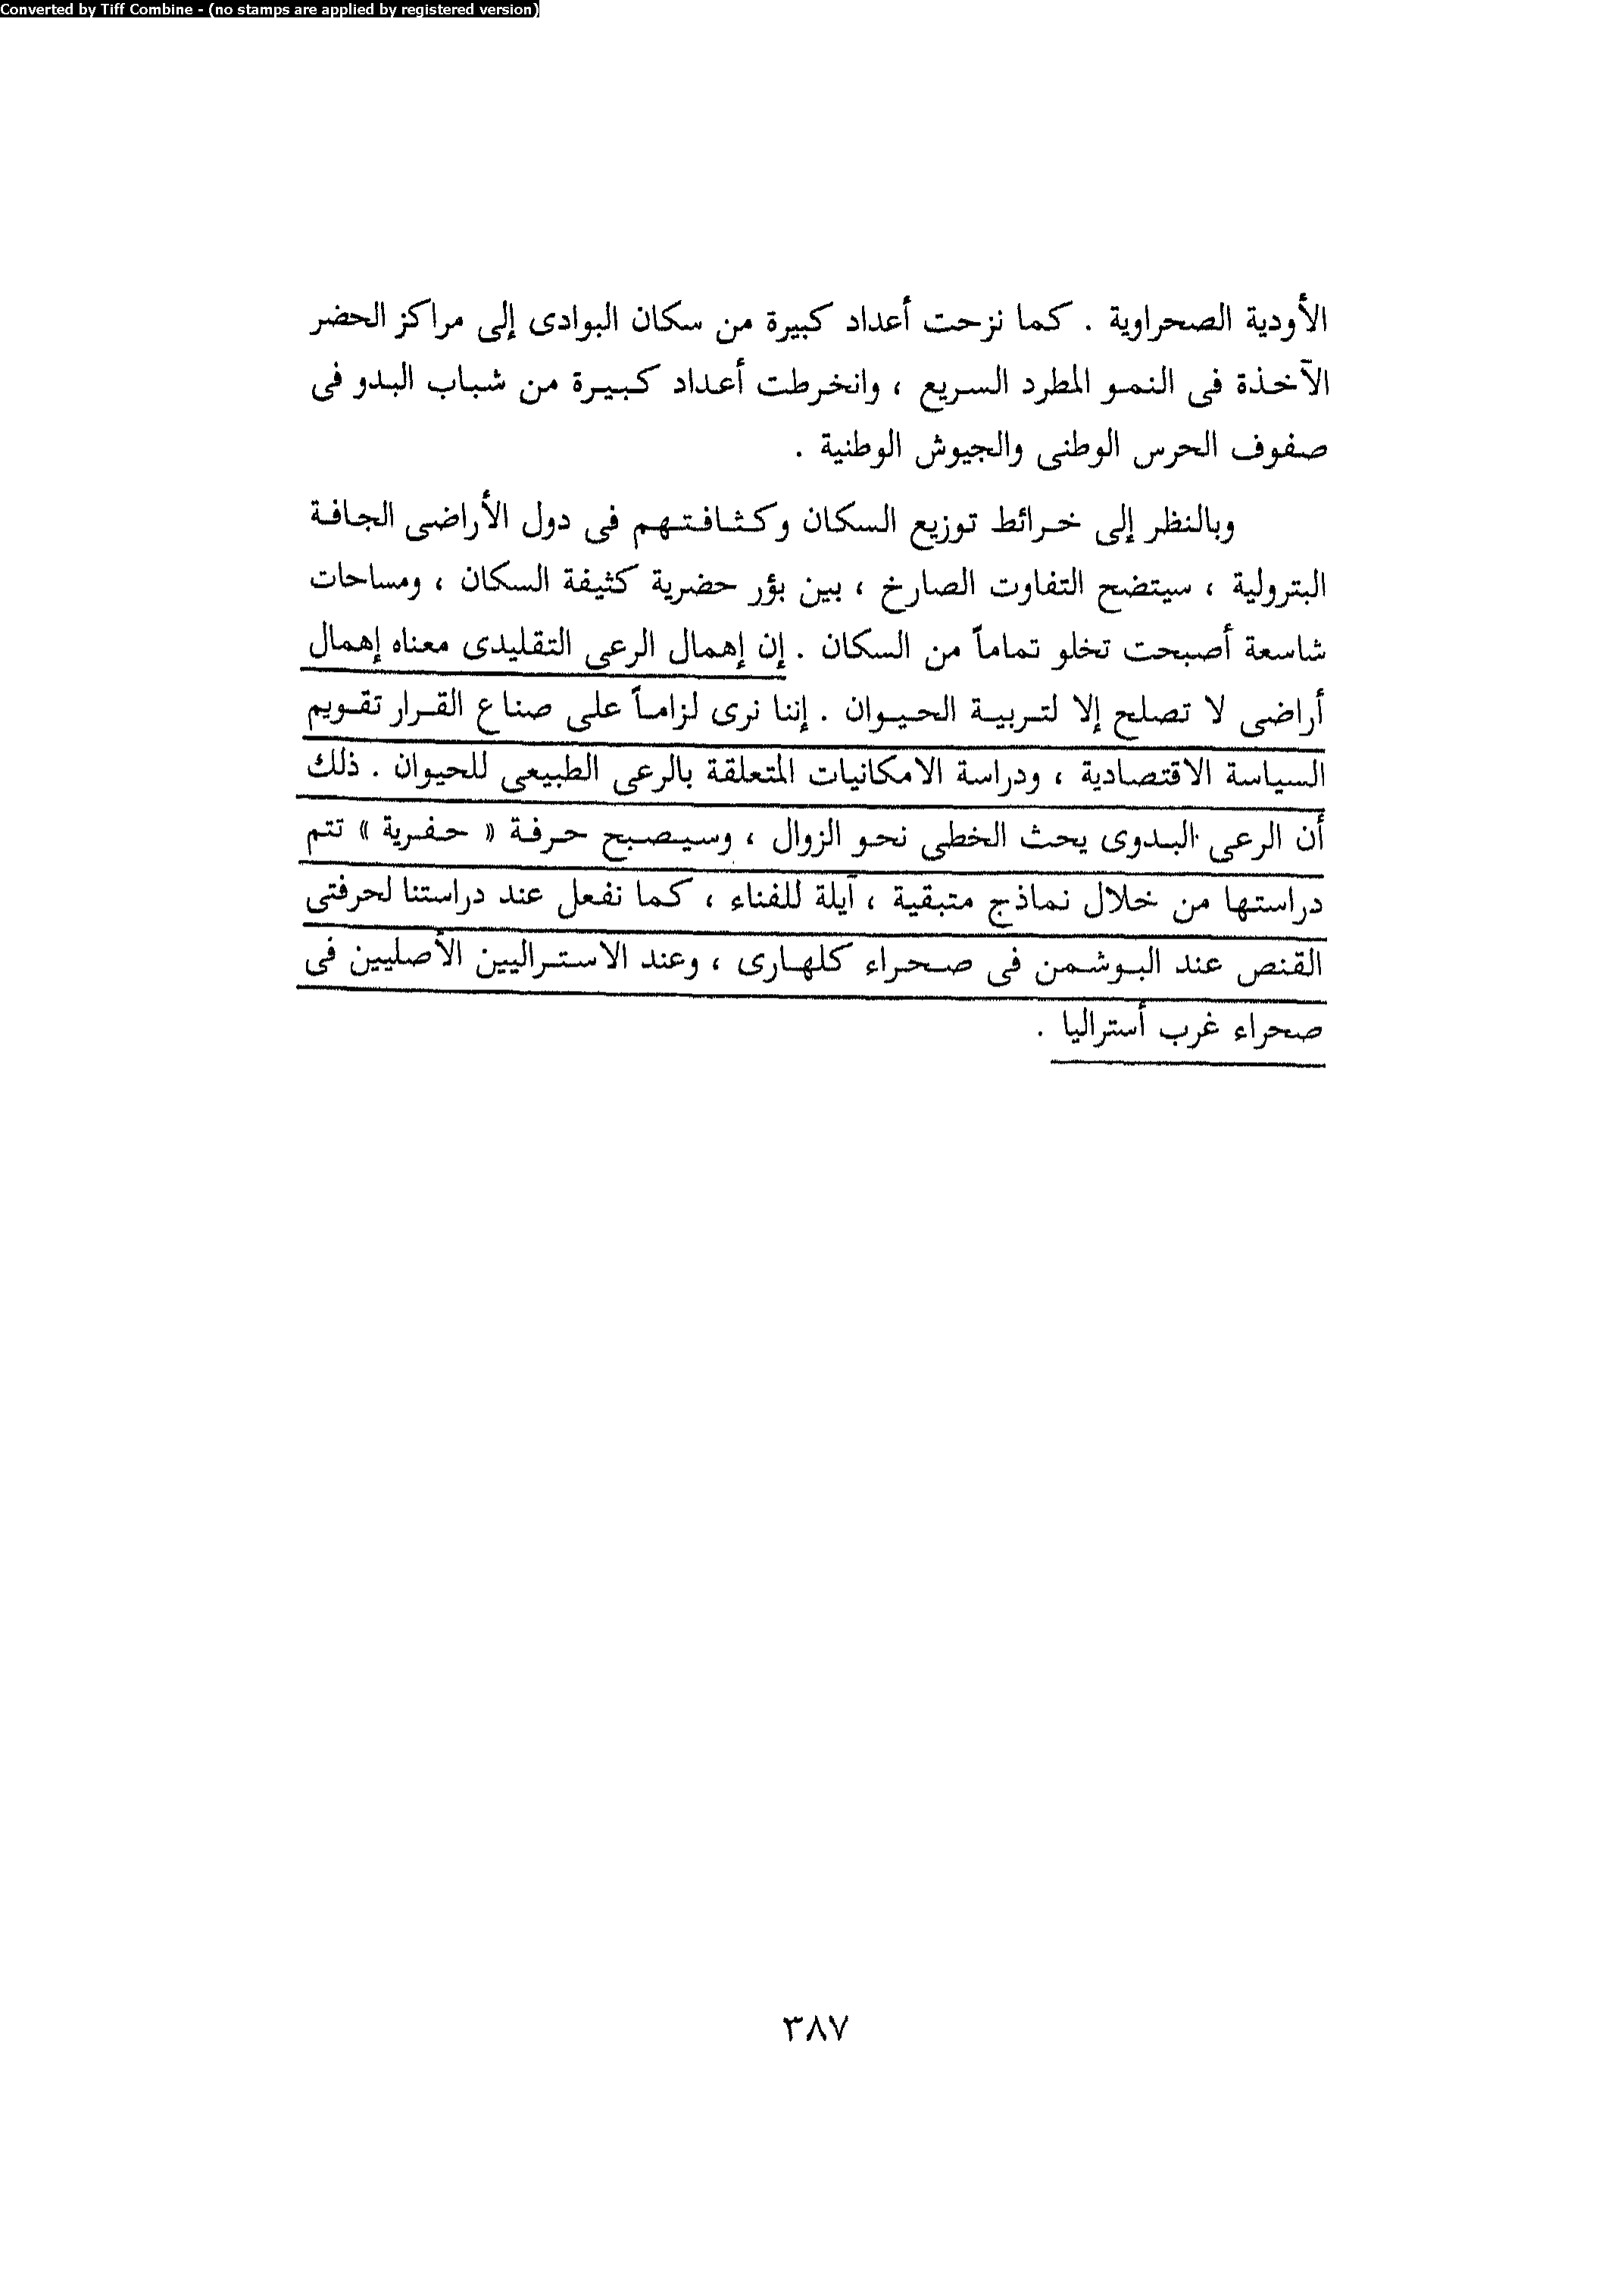 Converted by Tiff Combine - (no stamps are applied by registered version)
الأودية الصحراوية . كما نزحت أعداد كبيرة من سكان البوادى إلى مراكز الحضر
الآخذة فى النمو المطرد السريع ، وانخرطت أعداد كبيرة من شباب البدو فى
صفوف الحرس الوطنى والجيوش الوطنية .
وبالنظر إلى خرائط توزيع السكان وكثافتهم فى دول الأراضى الجافة
البترولية ، سيتضح التفاوت الصارخ ، بين بؤر حضرية كثيفة السكان ، ومساحات
شاسعة أصبحت تخلو تماماً من السكان . إن إهمال الرعى التقليدى معناه إهمال
أراضى لا تصلح إلا لتربية الحيوان . إننا نرى لزاماً على صناع القرار تقويم
السياسة الاقتصادية ، ودراسة الامكانيات المتعلقة بالرعى الطبيعى للحيوان . ذلك
أن الرعى البدوى يحث الخطى نحو الزوال ، وسيصبح حرفة « حفرية » تتم
دراستها من خلال نماذج متبقية ، آيلة للفناء ، كما نفعل عند دراستنا لحرفتى
القنص عند البوشمن فى صحراء كلهارى ، وعند الاستراليين الأصليين فى
صحراء غرب أستراليا .
٣٨٧